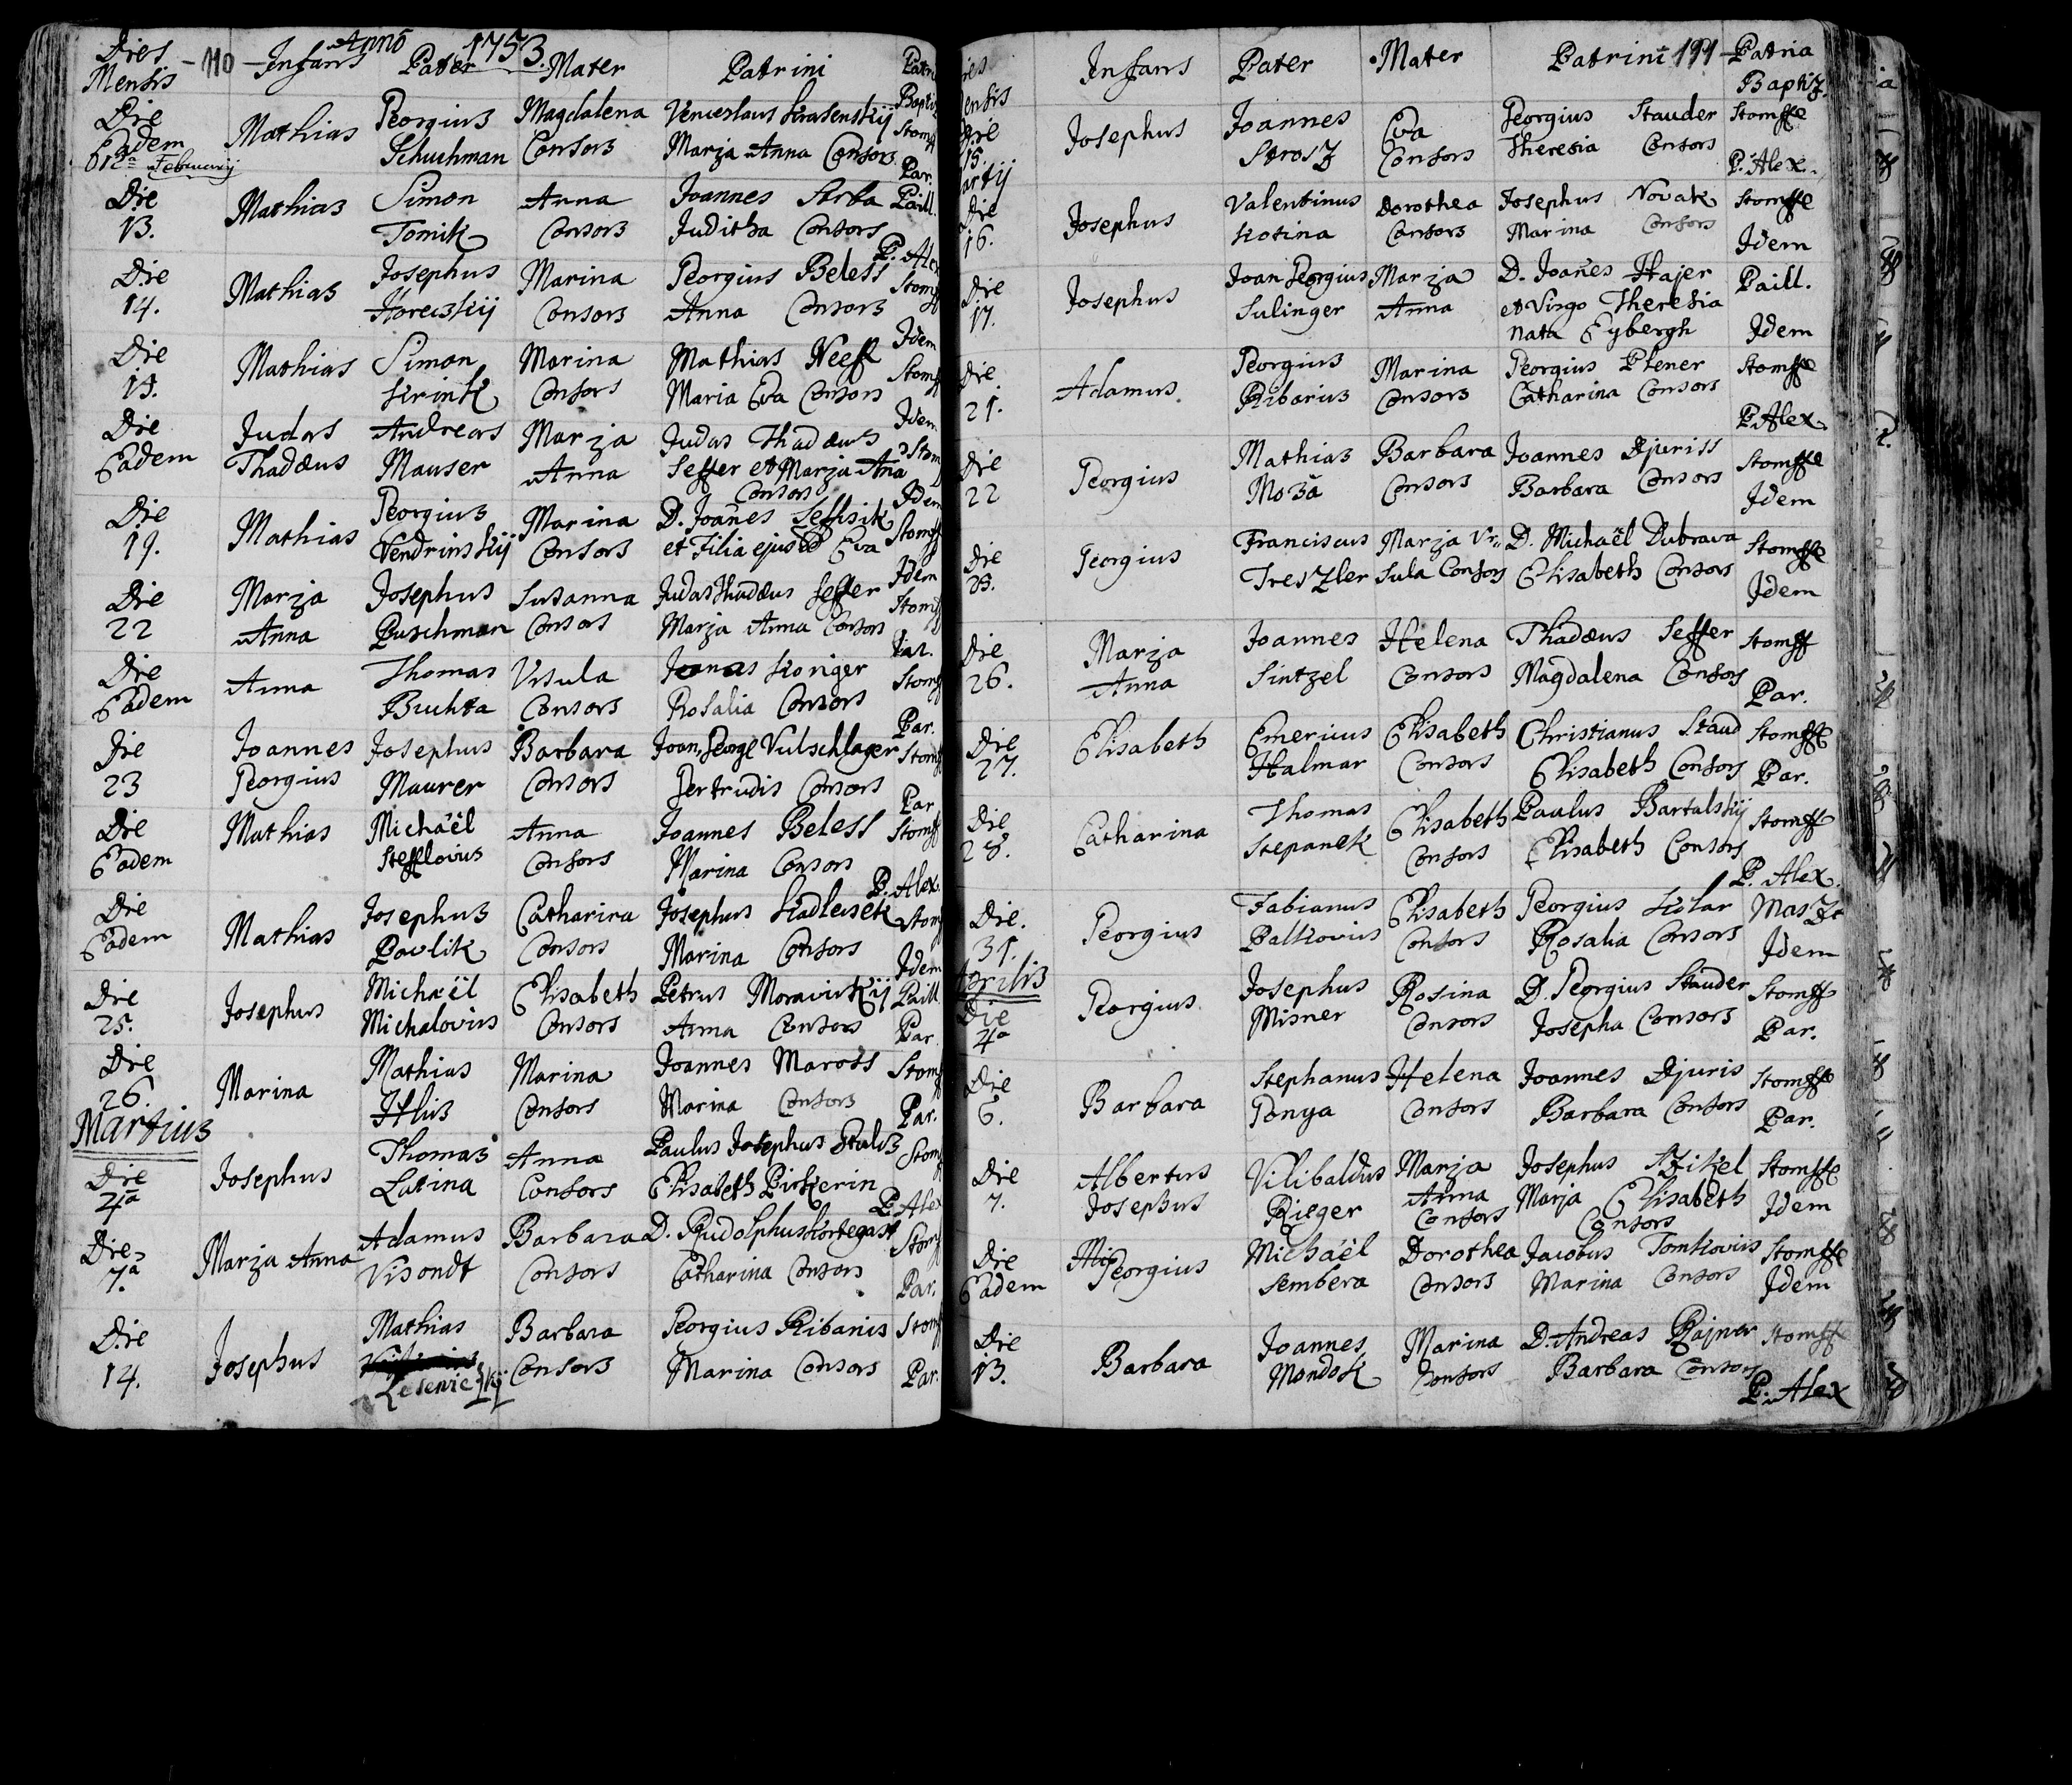 Anno 1753.
Dies Mensis - 110 - Infans Pater Mater Patrini
Die Eadem 12a Februarij Mathias Georgius Magdalena Venceslaus Krasenskij Stomff
Schuchman Consors Marja Anna Consors Par.
Die 13. Mathias Simon Anna Joannes Srba Paill.
Tomik Consors Juditha Consors P. Alex
Die 14. Mathias Josephus Marina Georgius Beless Stomff
Horeczkij Consors Anna Consors Idem
Die 15. Mathias Simon Marina Mathias Neeff Stomff
Krink Consors Maria Eva Consors Idem
Die Eadem Judas Andreas Marja Judas Thadæus Stomff
Thadæus Mauser Anna Seffer et Marja Ana
Consors Idem
Die 19. Mathias Georgius Marina D. Joanes Seffsik Stomff
Vendrinskij Consors et Filia ejusd Eva Idem
Die 22 Marja Josephus Susanna Judas Thadæus Seffer Stomff
Anna Puschman Consors Marja Anna Consors Par.
Die Eadem Anna Thomas Vrsula Joannes Koniger Stomff
Buchta Consors Rosalia Consors Par.
Die 23 Joannes Josephus Barbara Joan. George Vulschlager Stomff
Georgius Maurer Consors Gertrudis Consors Par
Die Eadem Mathias Michaël Anna Joannes Beless Stomff
Stefflovius Consors Marina Consors P. Alex.
Die Eadem Mathias Josephus Catharina Josephus Kadlecsek Stomff
Pavlik Consors Marina Consors Idem
Die 25. Josephus Michaël Elisabeth Petrus Moravickij Paill
Michalovius Consors Anna Consors Par
Die 26. Marina Mathias Marina Joannes Maross Stomff
Hlis Consors Marina Consors Par.
Martius
Die 4a Josephus Thomas Anna Paulus Josephus Stulz Stomff
Latina Consors Elisabeth Pirkerin P. Alex
Die 7.a Marja Anna Adamus Barbara D. Rudolphus Kortegast Stomff
Visondt Consors Catharina Consors Par.
Die 14. Josephus Mathias Barbara Georgius Ribarics Stomff
Lesenicskij Consors Marina Consors Par.
Dies Mensis Infans Pater Mater Patrini 111 Patria
Baptiz.
Die 15. Martij Josephus Joannes Eva Georgius Stauder Stomffe
Strosz Consors Theresia Consors P. Alex.
Die 16. Josephus Valentinus Dorothea Josephus Novak Stomffe
Kotina Consors Marina Consors Idem
Die 17. Josephus Joan Georgius Marja D. Joañes Hajer Paill.
Sulinger Anna et Virgo Theresia
nata Eybergh Idem
Die 21. Adamus Georgius Marina Georgius Plener Stomffe
Ribarius Consors Catharina Consors P. Alex.
Die 22 Georgius Mathias Barbara Joannes Djuriss Stomffe
Moza Consors Barbara Consors Idem
Die 25. Georgius Franciscus Marja Vr„ D. Michaël Dubrava Stomffe
Treszler sula Consors Elisabeth Consors Idem
Die 26. Marja Joannes Helena Thadæus Seffer Stomff
Anna Sintzel Consors Magdalena Consors Par.
Die 27. Elisabeth Emericus Elisabeth Christianus Staud Stomffe
Halmar Consors Elisabeth Consors Par.
Die 28. Catharina Thomas Elisabeth Paulus Bartalskij Stomff
Stepanek Consors Elisabeth Consors P. Alex.
Die. 31. Georgius Fabianus Elisabeth Georgius Kolar Maszt
Palkovius Consors Rosalia Consors Idem
Aprilis
Die 4a Georgius Josephus Rosina D. Georgius Stauder Stomff
Misner Consors Josepha Consors Par.
Die 6. Barbara Stephanus Helena Joannes Djuris Stomffe
Penya Consors Barbara Consors Par.
Die 7. Albertus Vilibaldus Marja Josephus Szikel Stomffe
Josephus Rieger Anna Consors Marja Elisabeth Consors Idem
Die Eadem Georgius Michaël Dorothea Jacobus Tomkovius Stomffe
Sembera Consors Marina Consors Idem
Die 13. Barbara Joannes Marina D. Andreas Rajner Stomffe
Mondok Consors Barbara Consors P. Alex